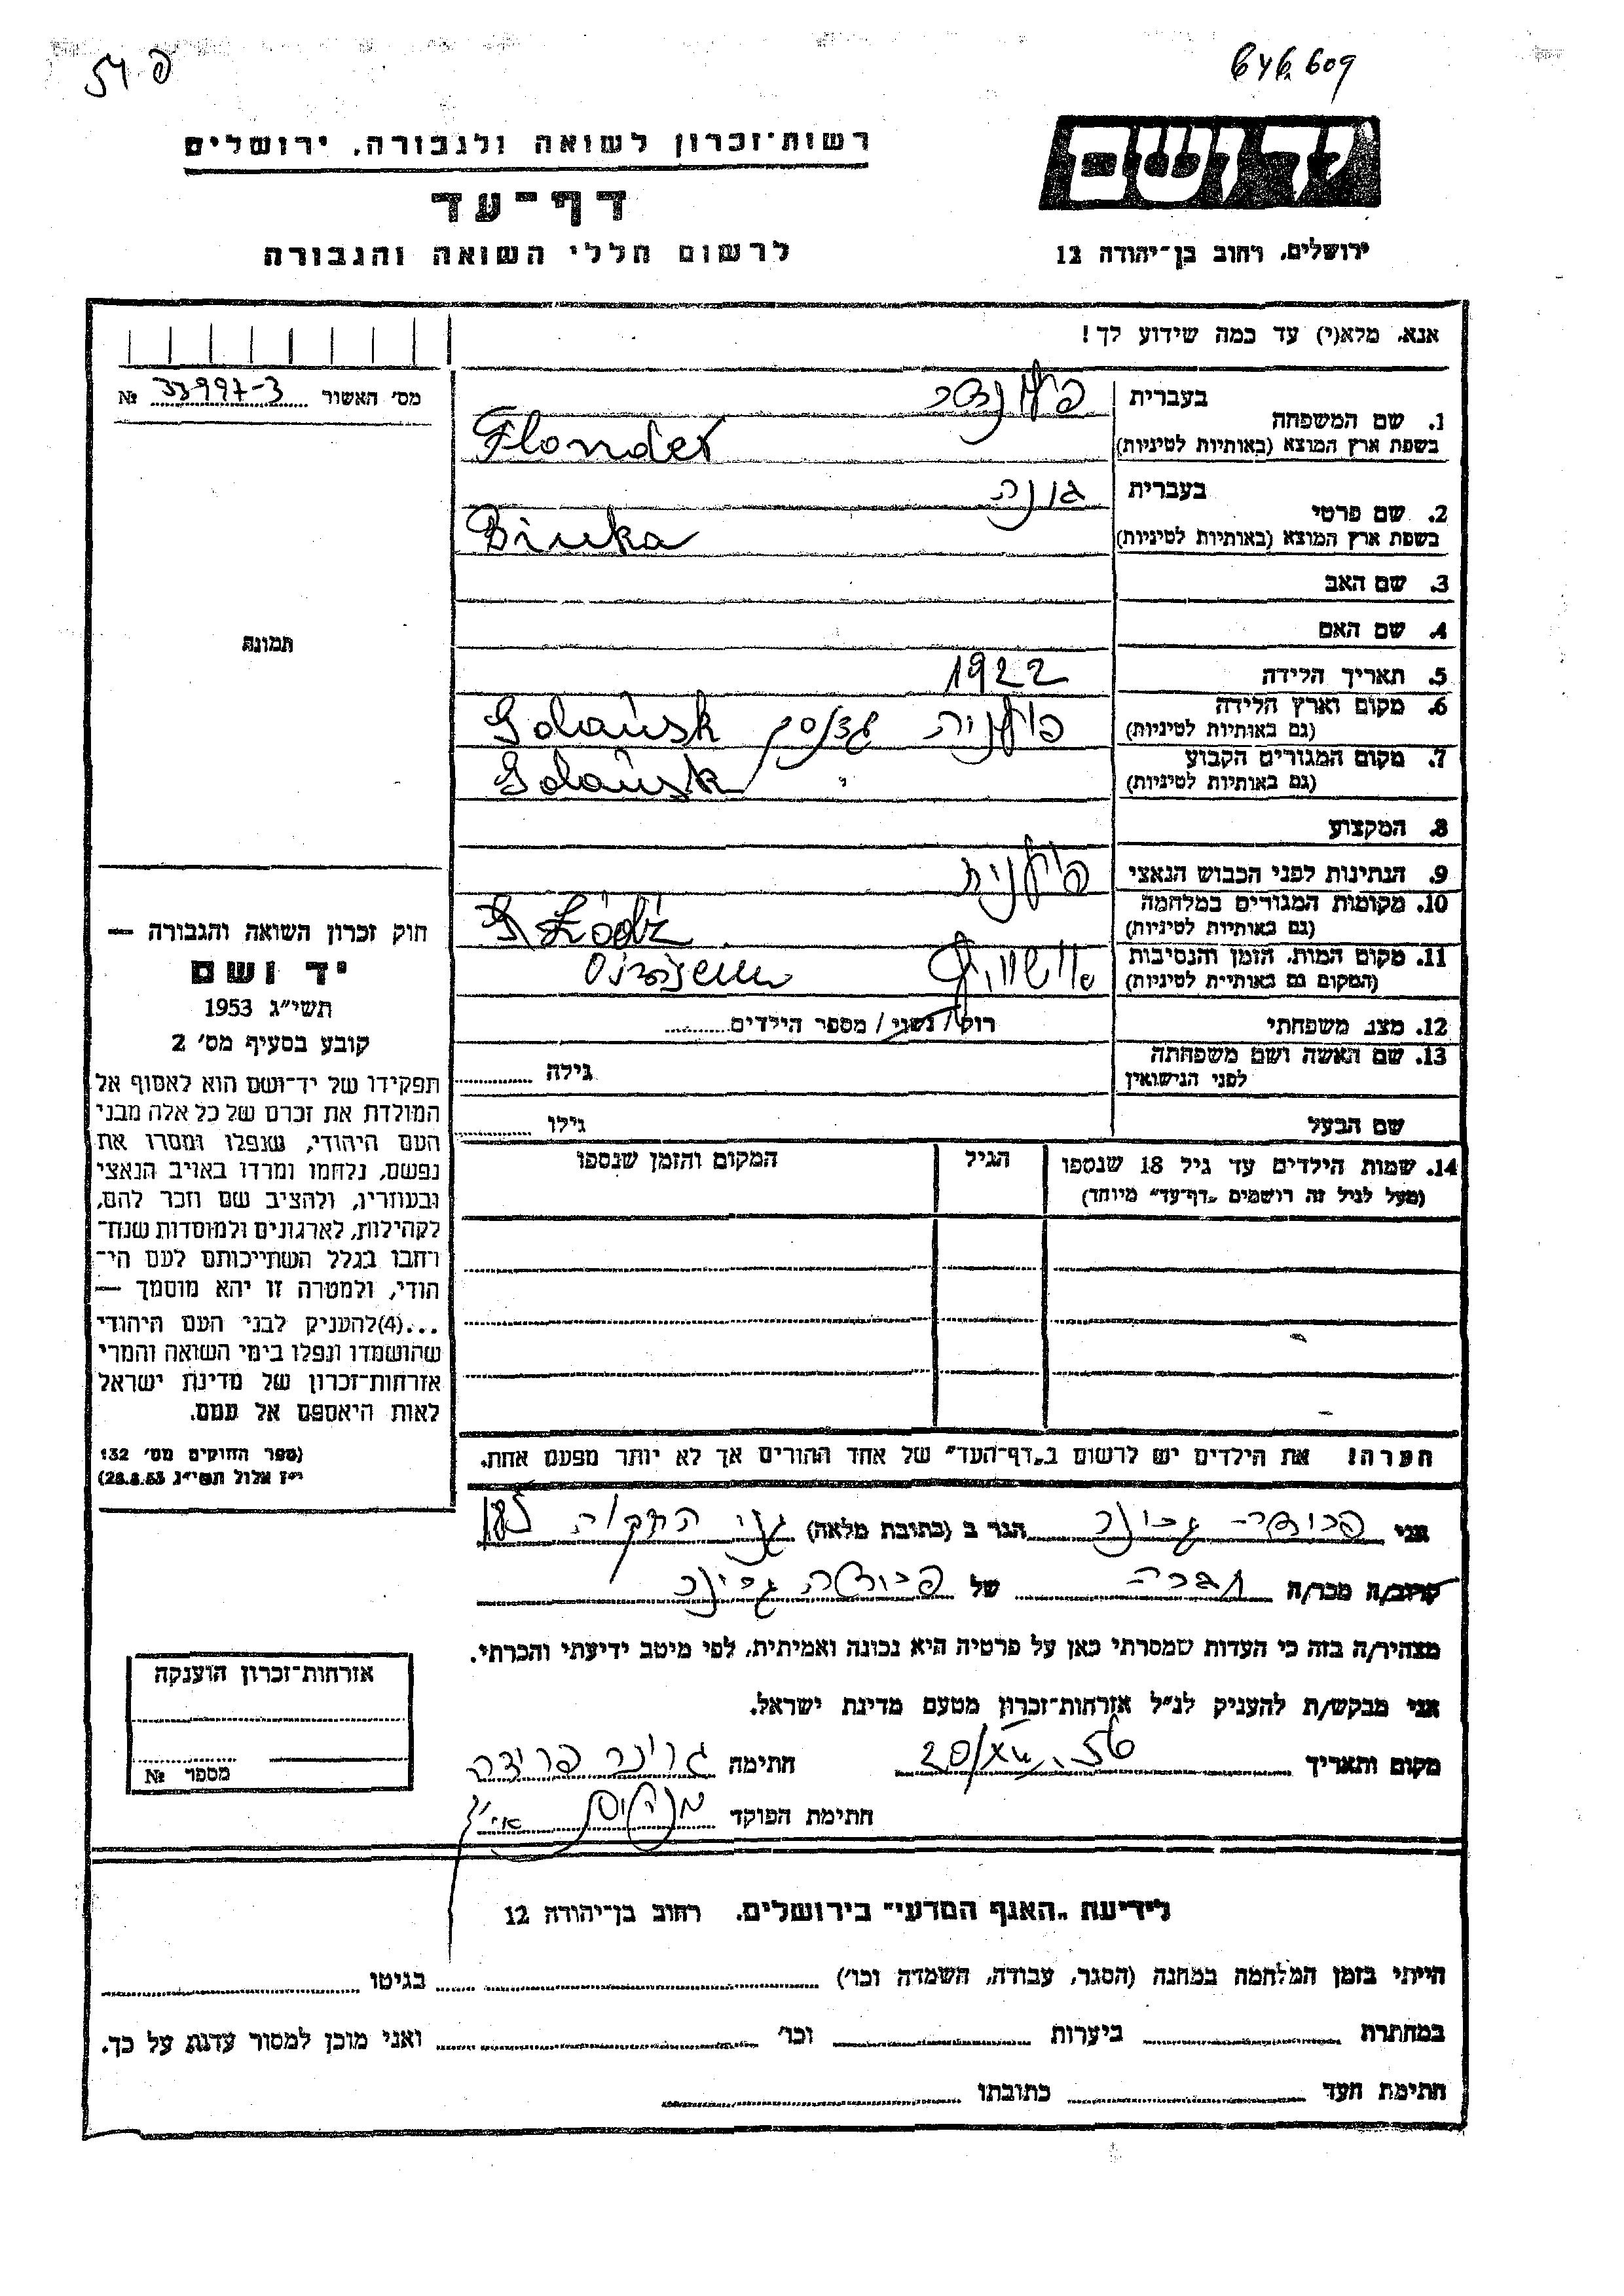 54 פ
646.609
רשות־זכרון לשואה ולגבורה, ירושלים
דף־עד
לרשום חללי השואה והגבורה
יד ושם
ירושלים, רחוב בן־יהודה 12
אנא, מלא(י) עד כמה שידוע לך!
מס' האשור 33997-3 №
תמונה
1. שם המשפחה
בעברית
בשפת ארץ המוצא (באותיות לטיניות) Flonder
2. שם פרטי
בעברית
בשפת ארץ המוצא (באותיות לטיניות)
3. שם האב
4. שם האם
5. תאריך הלידה 1922
6. מקום וארץ הלידה
(גם באותיות לטיניות) פולניה גדנסק Gdańsk
7. מקום המגורים הקבוע
(גם באותיות לטיניות) Gdańsk
8. המקצוע
9. הנתינות לפני הכבוש הנאצי פולנית
10. מקומות המגורים במלחמה
(גם באותיות לטיניות) Łódź
11. מקום המות, הזמן והנסיבות
(המקום גם באותיות לטיניות)
12. מצב משפחתי רוק / נשוי / מספר הילדים
13. שם האשה ושם משפחתה
לפני הנישואין
גילה
שם הבעל
גילו
14. שמות הילדים עד גיל 18 שנספו
(מעל לגיל זה רושמים „דף־עד" מיוחד)
הגיל
המקום והזמן שנספו
הערה! את הילדים יש לרשום ב„דף־העד" של אחד ההורים אך לא יותר מפעם אחת.
חוק זכרון השואה והגבורה —
יד ושם
תשי"ג 1953
קובע בסעיף מס' 2
תפקידו של יד־ושם הוא לאסוף אל
המולדת את זכרם של כל אלה מבני
העם היהודי, שנפלו ומסרו את
נפשם, נלחמו ומרדו באויב הנאצי
ובעוזריו, ולהציב שם וזכר להם,
לקהילות, לארגונים ולמוסדות שנח־
רבו בגלל השתייכותם לעם הי־
הודי, ולמטרה זו יהא מוסמך —
...(4)להעניק לבני העם היהודי
שהושמדו ונפלו בימי השואה והמרי
אזרחות־זכרון של מדינת ישראל
לאות היאספם אל עמם.
(ספר החוקים מס' 132
י"ז אלול תשי"ג, 28.8.53)
אני
הגר ב (כתובת מלאה) גני התקוה
קרוב/ה מכר/ה חברה של
מצהיר/ה בזה כי העדות שמסרתי כאן על פרטיה היא נכונה ואמיתית, לפי מיטב ידיעתי והכרתי.
אני מבקש/ת להעניק לנ"ל אזרחות־זכרון מטעם מדינת ישראל.
מקום ותאריך
חתימה
חתימת הפוקד
אזרחות־זכרון הוענקה
מספר №
לידיעת „האגף המדעי" בירושלים, רחוב בן־יהודה 12
הייתי בזמן המלחמה במחנה (הסגר, עבודה, השמדה וכו') בגיטו
במחתרת ביערות וכו' ואני מוכן למסור עדות על כך.
חתימת העד כתובתו